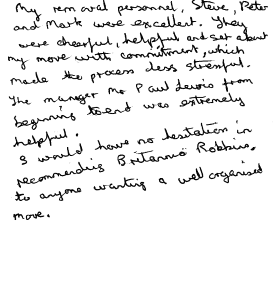 My removal personnel, Steve, Peter
and Mark were excellent. They
were cheerful, helpful and sat about
my move with commitment, which
made the process less stressful.
The manager Mr Paul Lewis from
beginning to end was extremely
helpful.
I would have no hesitation in
recommending Britannia Robbins,
to anyone wanting a well organised
move.